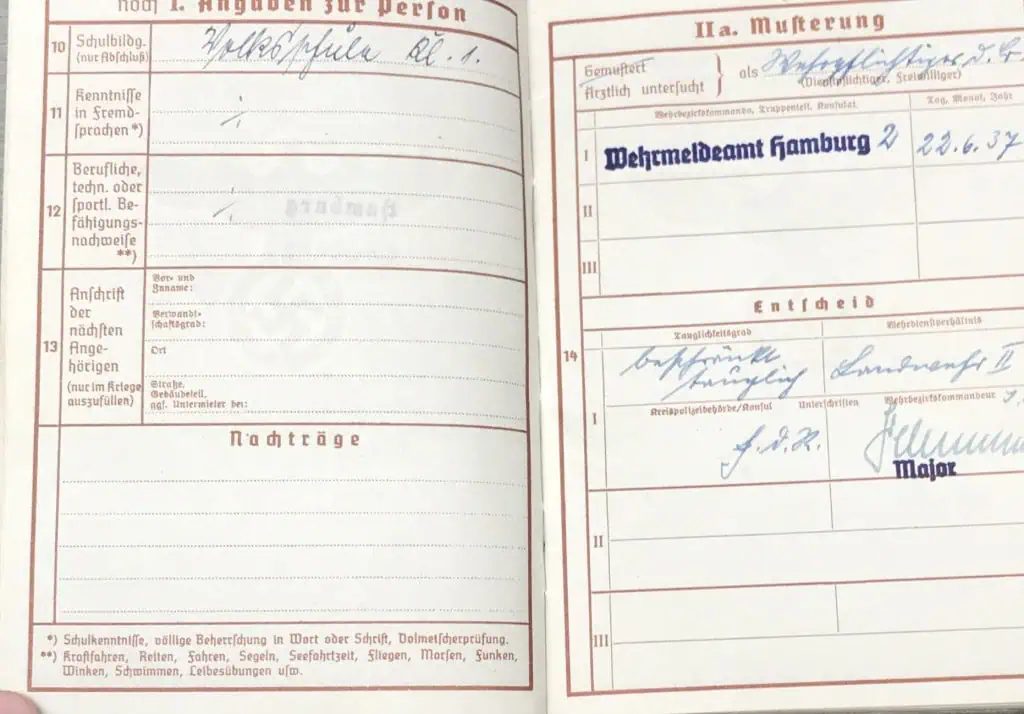 noch I. Angaben zur Person
10 Schulbildg. (nur Abschluß) Volksschule Kl. 1.
11 Kenntnisse in Fremdsprachen *) ./.
12 Berufliche, techn. oder sportl. Befähigungsnachweise **) ./.
13 Anschrift der nächsten Angehörigen (nur im Kriege auszufüllen)
Vor- und Zuname:
Verwandtschaftsgrad:
Ort
Straße, Gebäudeteil, ggf. Untermieter bei:
Nachträge
*) Schulkenntnisse, völlige Beherrschung in Wort oder Schrift, Dolmetscherprüfung.
**) Kraftfahren, Reiten, Fahren, Segeln, Seefahrtzeit, Fliegen, Morsen, Funken,
Winken, Schwimmen, Leibesübungen usw.
IIa. Musterung
Gemustert
Ärztlich untersucht
als Wehrpflichtiger d.
(Dienstpflichtiger, Freiwilliger)
Wehrbezirkskommando, Truppenteil, Konsulat
Tag, Monat, Jahr
I Wehrmeldeamt Hamburg 2 22.6.37
II
III
Entscheid
14
Tauglichkeitsgrad
Wehrdienstverhältnis
I beschränkt tauglich
Landwehr II
Kreispolizeibehörde/Konsul Unterschriften Wehrbezirkskommandeur
Major
II
III
Hamburg